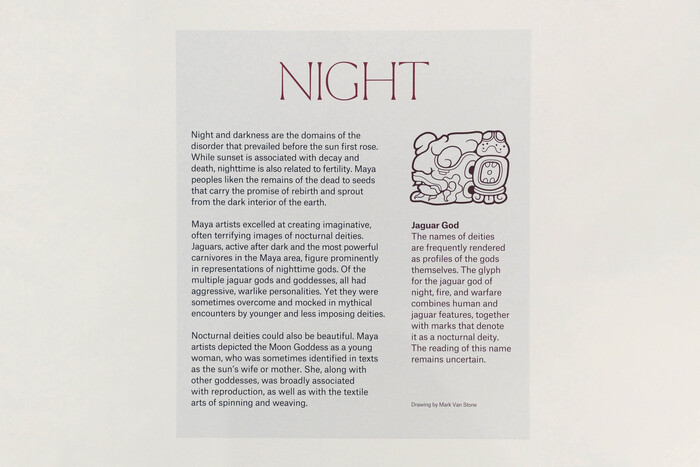 NIGHT
Night and darkness are the domains of the
disorder that prevailed before the sun first rose.
While sunset is associated with decay and
death, nighttime is also related to fertility. Maya
peoples liken the remains of the dead to seeds
that carry the promise of rebirth and sprout
from the dark interior of the earth.
Maya artists excelled at creating imaginative,
often terrifying images of nocturnal deities.
Jaguars, active after dark and the most powerful
carnivores in the Maya area, figure prominently
in representations of nighttime gods. Of the
multiple jaguar gods and goddesses, all had
aggressive, warlike personalities. Yet they were
sometimes overcome and mocked in mythical
encounters by younger and less imposing deities.
Nocturnal deities could also be beautiful. Maya
artists depicted the Moon Goddess as a young
woman, who was sometimes identified in texts
as the sun's wife or mother. She, along with
other goddesses, was broadly associated
with reproduction, as well as with the textile
arts of spinning and weaving.
Jaguar God
The names of deities
are frequently rendered
as profiles of the gods
themselves. The glyph
for the jaguar god of
night, fire, and warfare
combines human and
jaguar features, together
with marks that denote
it as a nocturnal deity.
The reading of this name
remains uncertain.
Drawing by Mark Van Stone